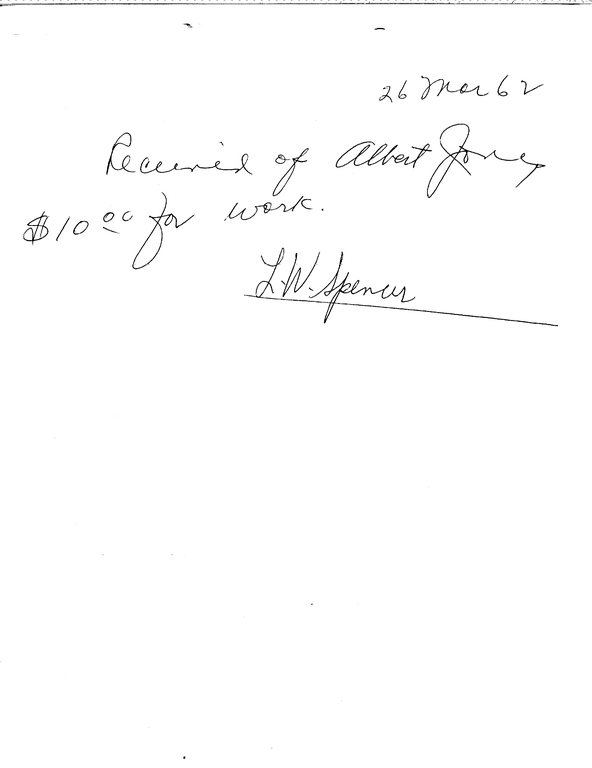 26 Mar 62
Received of Albert Jones
$10 00 for work.
L.W. Spencer